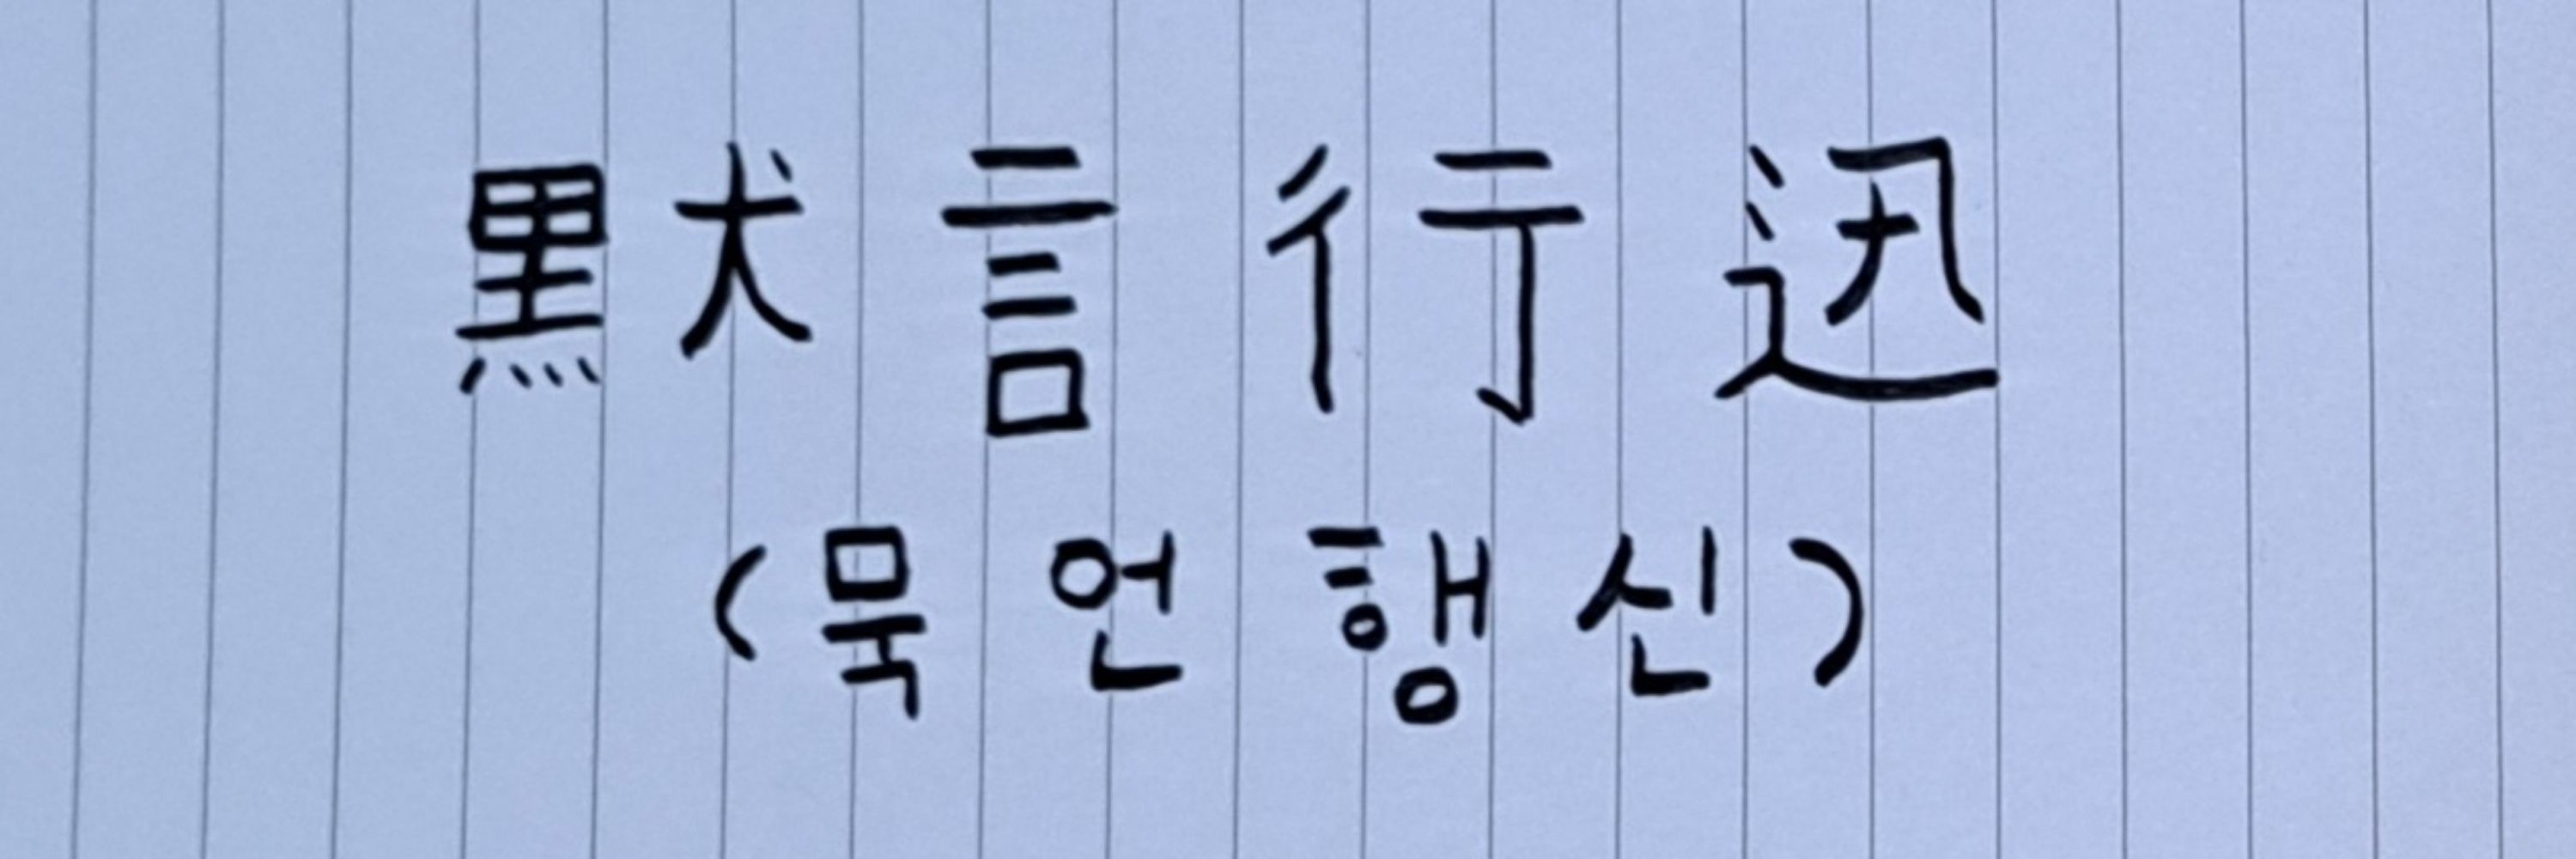 默言行迅
(묵언행신)